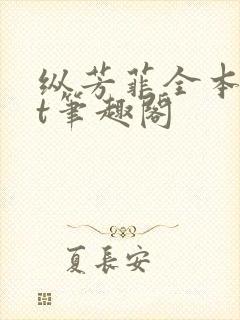 纵芳菲全本
t笔趣阁
夏长安